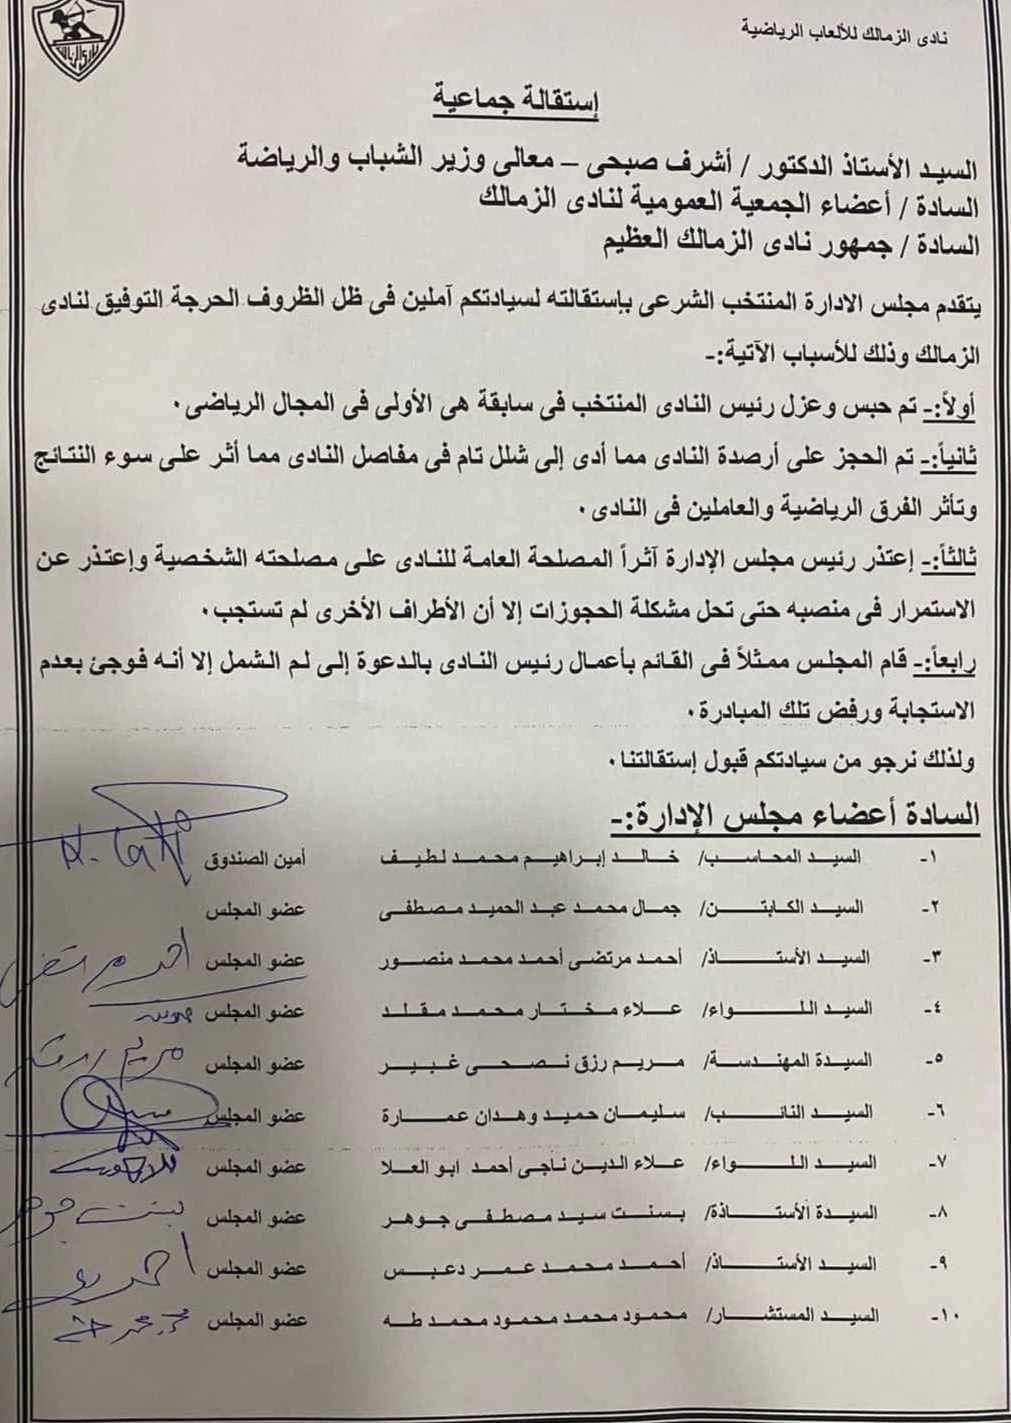 نادى الزمالك للألعاب الرياضية
إستقالة جماعية
السيد الأستاذ الدكتور / أشرف صبحى – معالى وزير الشباب والرياضة
السادة / أعضاء الجمعية العمومية لنادى الزمالك
السادة / جمهور نادى الزمالك العظيم
يتقدم مجلس الادارة المنتخب الشرعى بإستقالته لسيادتكم آملين فى ظل الظروف الحرجة التوفيق لنادى
الزمالك وذلك للأسباب الآتية:-
أولاً:- تم حبس وعزل رئيس النادى المنتخب فى سابقة هى الأولى فى المجال الرياضى.
ثانياً:- تم الحجز على أرصدة النادى مما أدى إلى شلل تام فى مفاصل النادى مما أثر على سوء النتائج
وتأثر الفرق الرياضية والعاملين فى النادى.
ثالثاً:- إعتذر رئيس مجلس الإدارة آثراً المصلحة العامة للنادى على مصلحته الشخصية وإعتذر عن
الاستمرار فى منصبه حتى تحل مشكلة الحجوزات إلا أن الأطراف الأخرى لم تستجب.
رابعاً:- قام المجلس ممثلاً فى القائم بأعمال رئيس النادى بالدعوة إلى لم الشمل إلا أنه فوجئ بعدم
الاستجابة ورفض تلك المبادرة.
ولذلك نرجو من سيادتكم قبول إستقالتنا.
السادة أعضاء مجلس الإدارة:-
١- السيد المحاسب/ خالد إبراهيم محمد لطيف أمين الصندوق
٢- السيد الكابتن/ جمال محمد عبد الحميد مصطفى عضو المجلس
٣- السيد الأستاذ/ أحمد مرتضى أحمد محمد منصور عضو المجلس
٤- السيد اللواء/ علاء مختار محمد مقلد عضو المجلس
٥- السيدة المهندسة/ مريم رزق نصحى غبير عضو المجلس
٦- السيد النائب/ سليمان حميد وهدان عمارة عضو المجلس
٧- السيد اللواء/ علاء الدين ناجى أحمد ابو العلا عضو المجلس
٨- السيدة الأستاذة/ بسنت سيد مصطفى جوهر عضو المجلس
٩- السيد الأستاذ/ أحمد محمد عمر دعبس عضو المجلس
١٠- السيد المستشار/ محمود محمد محمود محمد طه عضو المجلس